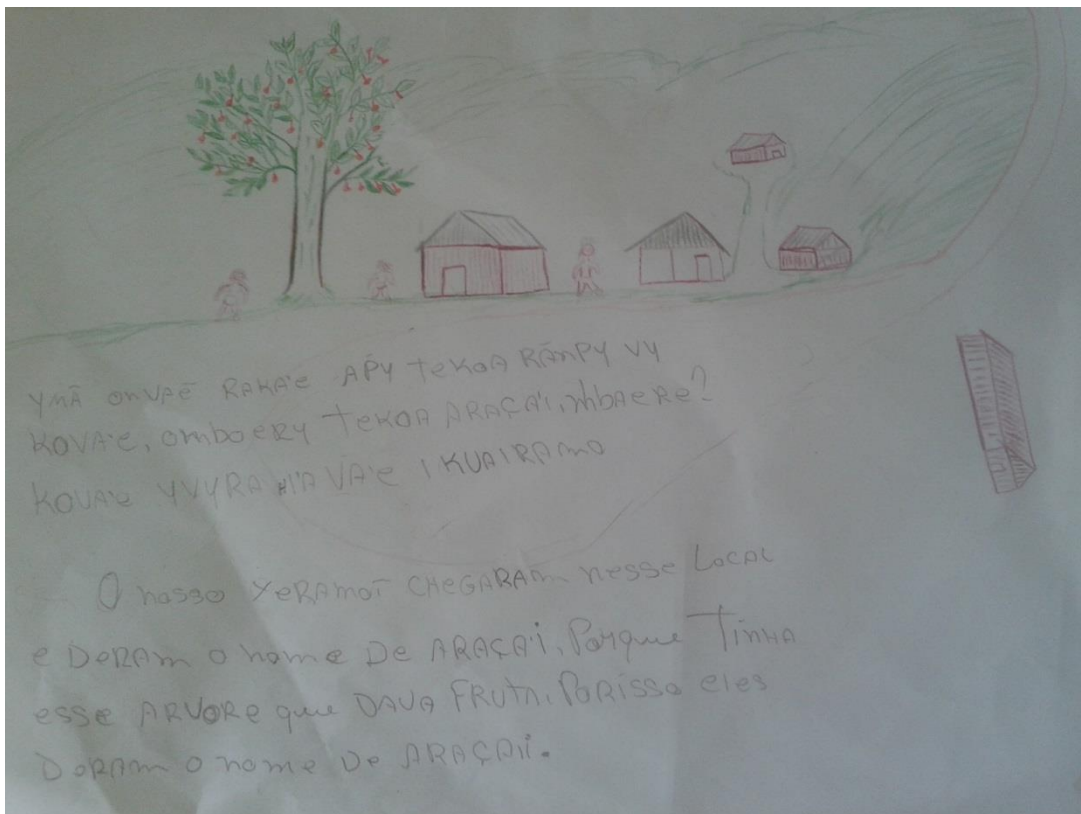 YMÃ OnVAẼ RAKA'E APY TEKOA RÃMPY VY
KOVA'E, OMBOERY TEKOA ARAÇA'I, MBAERE?
KOVA'E YVYRA HI'A VA'E I KUAIRAMO
O nosso XERAMOI CHEGARAM nesse LOCAL
e DERAM o nome De ARAÇA'I, Porque TINHA
esse ARVORE que DAVA FRUTA, Por isso eles
DERAM o nome De ARAÇA'I.